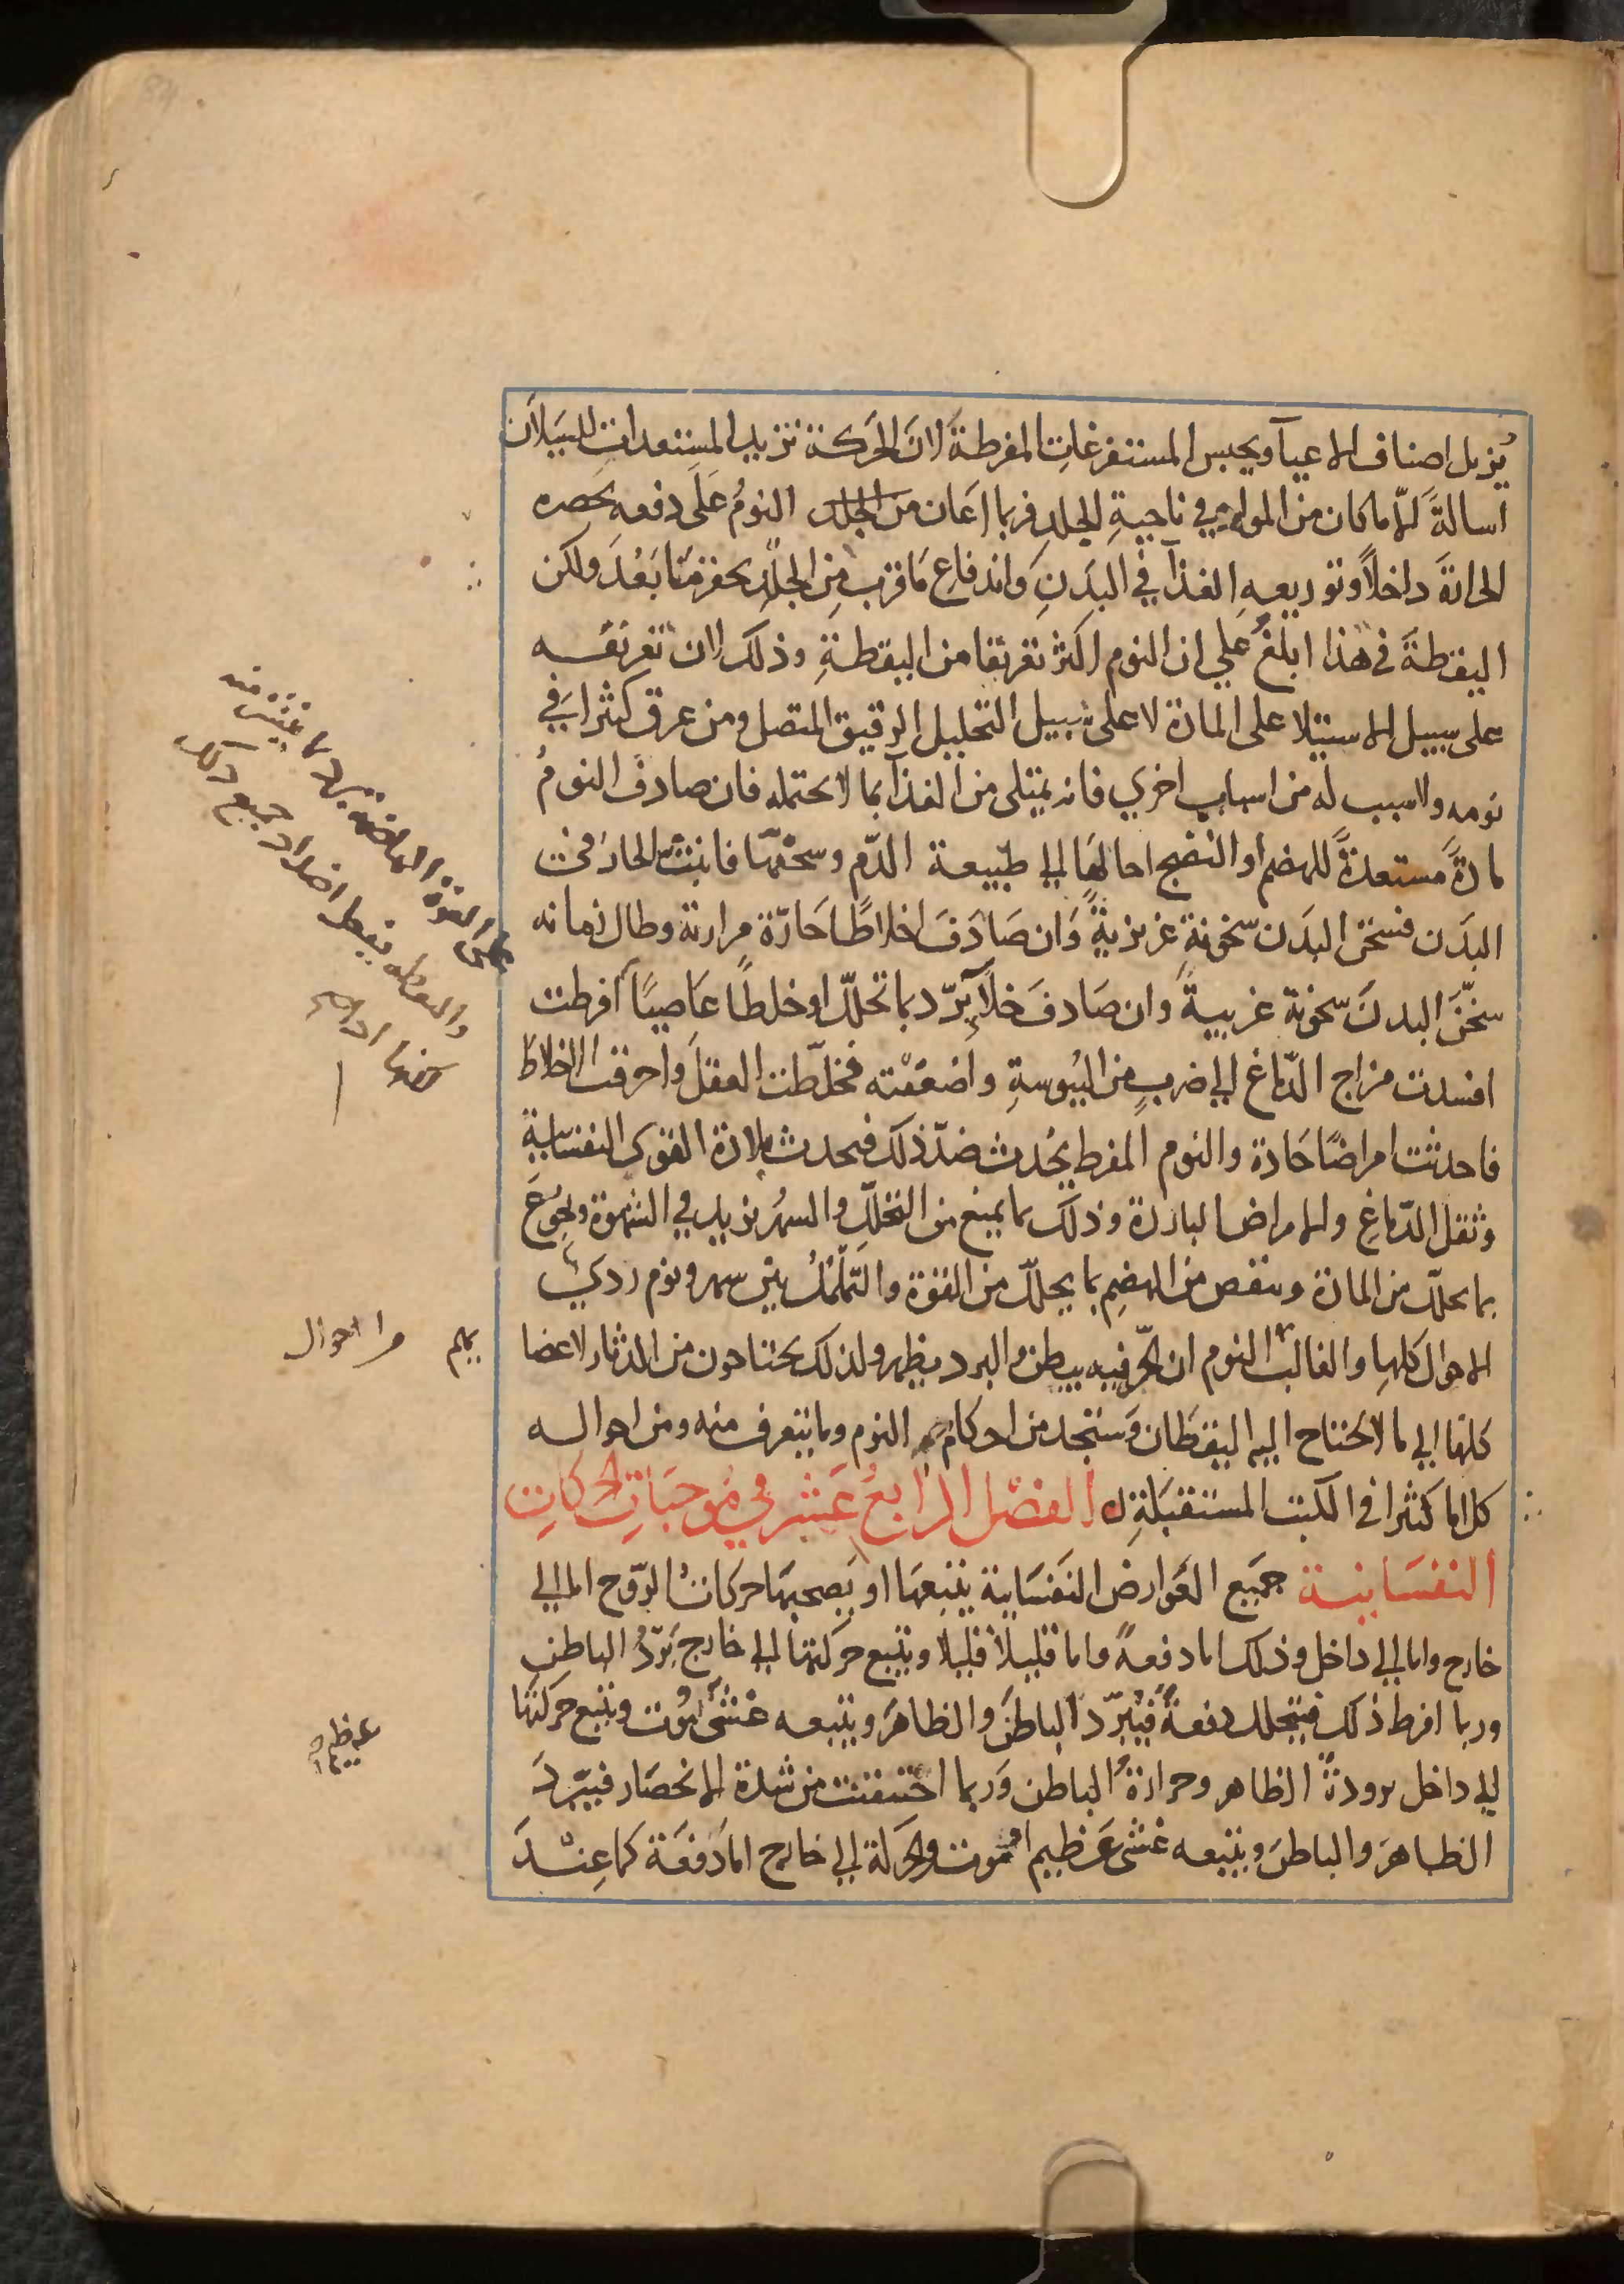 يُزيل اصناف الاعيآ ويحبس المستفرغات المفرطةَ لانَ الحَركة تزيد المستعدات للسَيلان
اسالةً الّا ما كان من المواد في ناحيةِ الجلدِ فربما اعَان من الجلد النومُ عَلَى دفعه بحَصره
الحرارةَ داخلاً وتوزيعه الغذآ في البَدَنِ واندفاعِ مَا قرب مِن الجلدِ بحفز مَا بَعُدَ ولكن
اليقظةَ في هذا ابلغُ علي ان النوم اكثر تعريقا من اليقظةِ وذلك لان تعريقه
على سبيل الاستيلا على المادة لا على سبيل التحليل الرقيق المتصل ومن عرق كثيرا في
نومه ولا سبب له من اسبابٍ اخري فانه يمتلى من الغذآ بما لا يحتمله فان صادف النومُ
مادةً مستعدةً للهضم او النضج احالهَا الي طبيعة الدّم وسخنّها فانبثّ الحار في
البدَن فسخن البدَن سخونةً غريزيةً وَان صَادَفَ اخلاطًا حَارّة مرارية وطال زمانه
سخّنَ البدنَ سخونة غريبيةً وان صَادفَ خلآءً برّد بما تحلّل او خلطًا عَاصيًا افرطت
افسدت مزاج الدّماغ الي ضربٍ من اليُبوسةِ واضعفته فخلّطت العقلَ واحرقت الاخلاط
فاحدثت امراضًا حَادة والنوم المفرط يحُدث ضدّ ذلك فيحدث بلادة القوى النفسَانيةِ
وثقل الدّماغِ والامراض الباردة وذلك بما يمنع من التحلّلِ والسهُر يزيد في الشهوة ويجُوّعَ
بما يحلّل من المادة وينقص من الهضِم بما يحللّ من القوة والتّململُ بين سهر ونوم رديُ
الاحوال كلها والغالب في النوم ان الحَرّ فيه يبطن والبرد يظهر ولذلك يحتاجون من الدثار لاعضا
كلها الي ما لا يحتاج اليه اليقظَان وَستجد من احكام النوم وما يتعرف منه ومن احواله
كلاما كثيرا في الكتب المستقبَلةِ الفصْل الرّابعُ عَشر في مُوجبَاتِ الحركاتِ
النفسَانية جمَيع العَوارض النفَسَانية يتبعهَا او يَصحبهَا حركاتُ الرّوح اما الي
خارج واما الي داخل وذلك اما دفعةً واما قليلاً قليلا ويتبع حركتها الي خارج بَرّدُ الباطن
وربما افرط ذلك فيتحلل دفعةً فيبّرد الباطنَ والظاهرَ ويتبعه غشىُ او موت ويتبع حركتها
الي داخل برودةُ الظاهر وحرارةُ الباطن وَربما اختنقت من شدة الانحصَار فيبّرد
الظاهرَ والباطنَ ويتبعه غشى عَظيم او موت والحركة الي خارج امّا دَفعَة كما عِنْدَ
القوة الهاضمة
جميع ذلك
الاحوال
عظيم